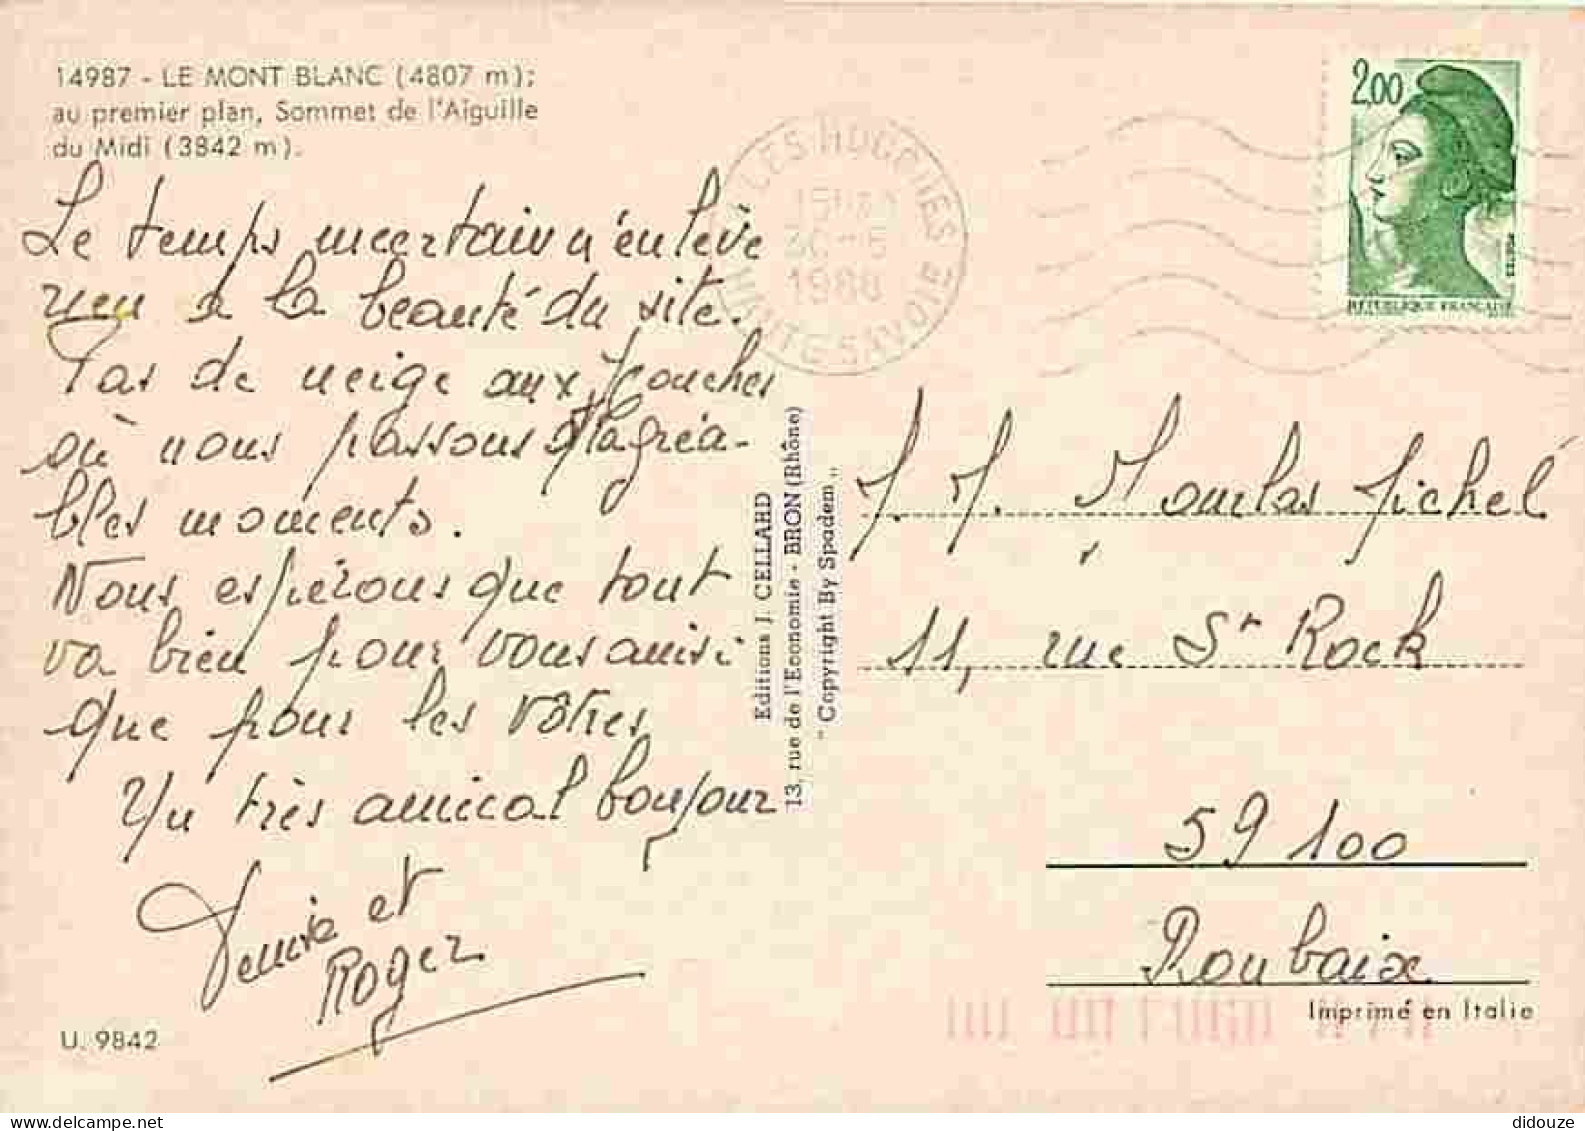 14987 - LE MONT BLANC (4807 m);
au premier plan, Sommet de l'Aiguille
du Midi (3842 m).
Le temps incertain n'enlève
rien à la beauté du site.
Pas de neige aux Houches
où nous passons d'agréa-
bles moments.
Nous espérons que tout
va bien pour vous ainsi
que pour les vôtres
Un très amical bonjour
Denise et
Roger
U. 9842
Editions J. CELLARD
13, rue de l'Economie - BRON (Rhône)
"Copyright By Spadem"
LES HOUCHES
30-5
1988
HAUTE SAVOIE
2.00
POSTES
REPUBLIQUE FRANÇAISE
Michel
11, rue St Rock
59100
Roubaix
Imprimé en Italie
didouze